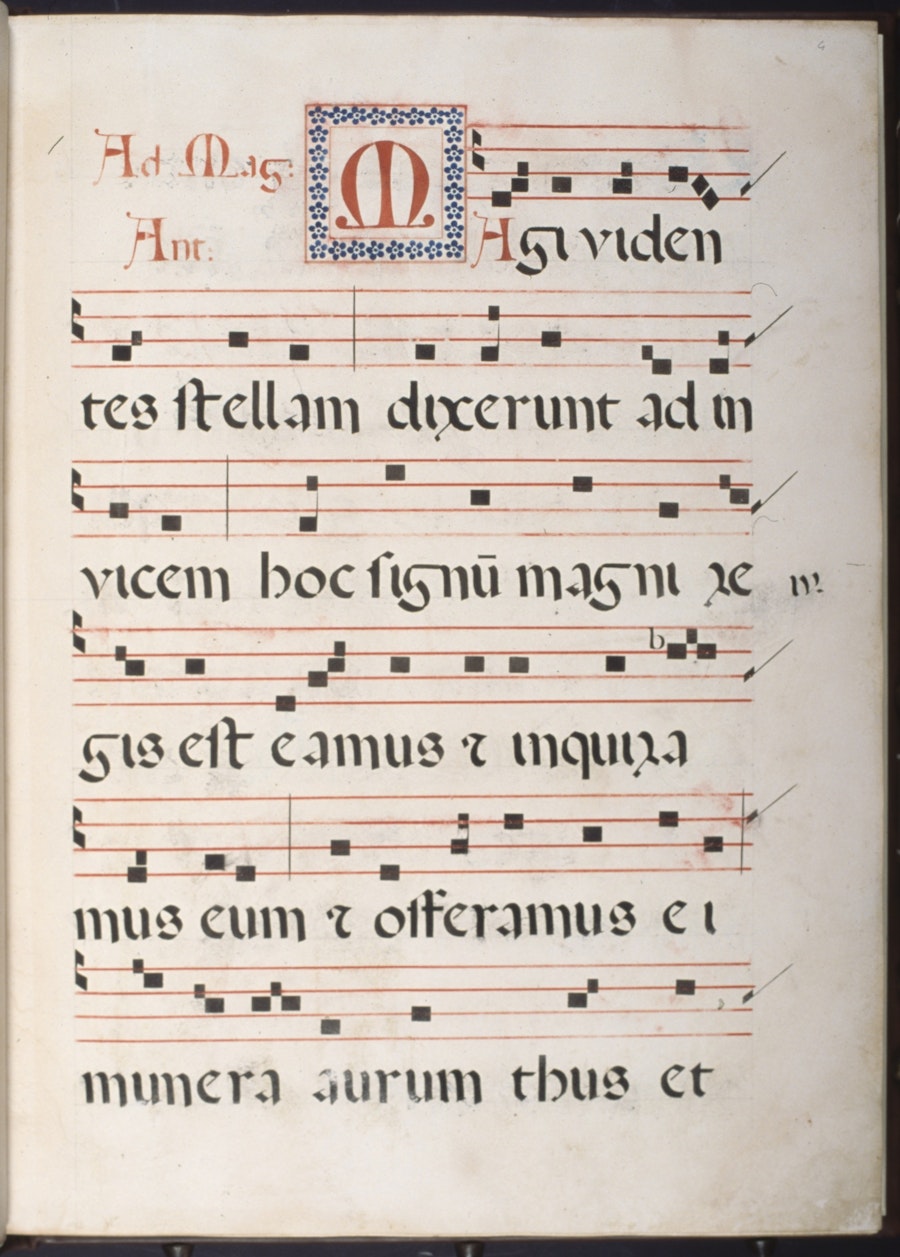 Ad Mag:
Ant.
MAgi viden
tes stellam dixerunt ad in
vicem hoc signū magni re
gis est eamus ⁊ inquira
b
mus eum ⁊ offeramus ei
munera aurum thus et